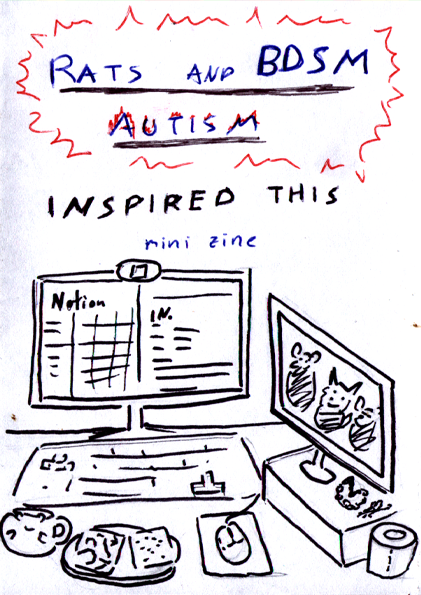 RATS AND BDSM
AUTISM
INSPIRED THIS
mini zine
Notion
IN.